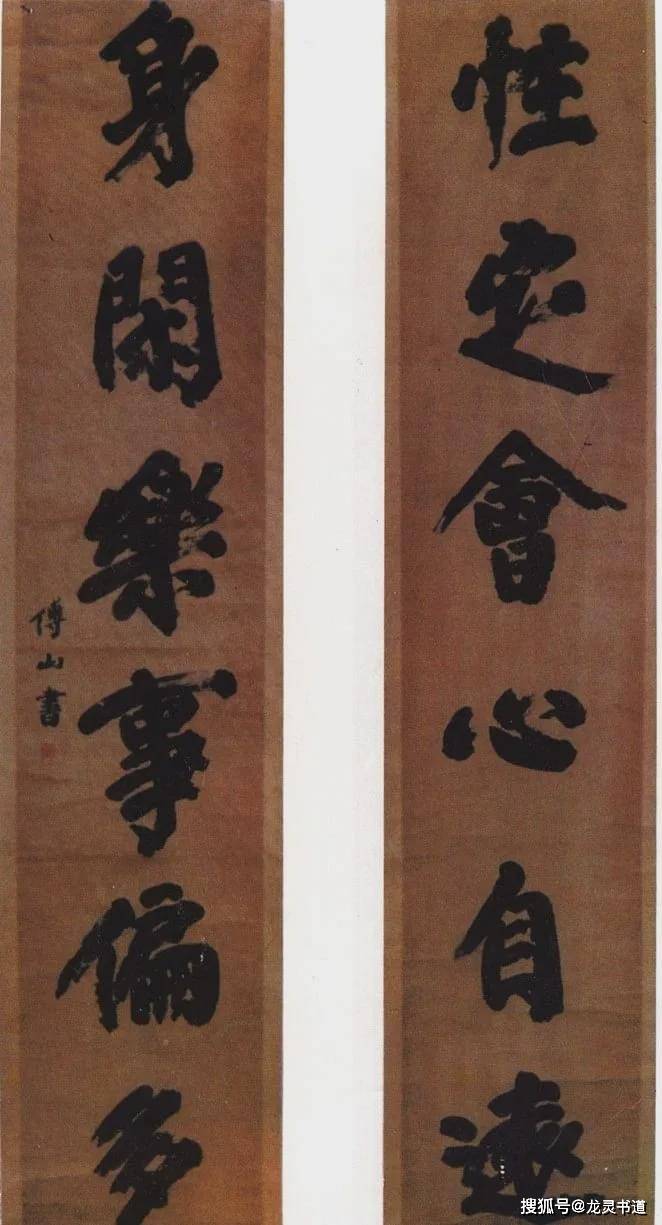 性定會心自遠
身閑樂事偏多
傅山書
搜狐号@龙灵书道